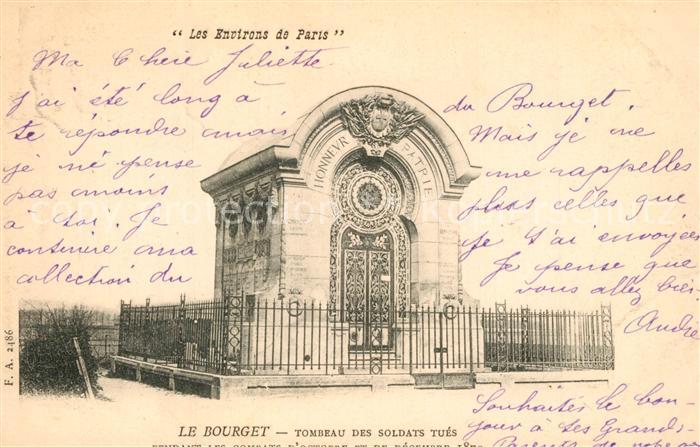 "Les Environs de Paris"
Ma Chère Juliette.
J'ai été long à
te répondre mais
je ne pense
pas moins
à toi. Je
continue ma
collection du
du Bourget.
Mais je ne
me rappelles
plus celles que
je t'ai envoyées
Je pense que
vous allez bien
André
Souhaites le bon-
jour à tes Grand-
Parents de
HONNEVR PATRIE
F. A. 2486
LE BOURGET — TOMBEAU DES SOLDATS TUÉS
PENDANT LES COMBATS D'OCTOBRE ET DE DÉCEMBRE 1870